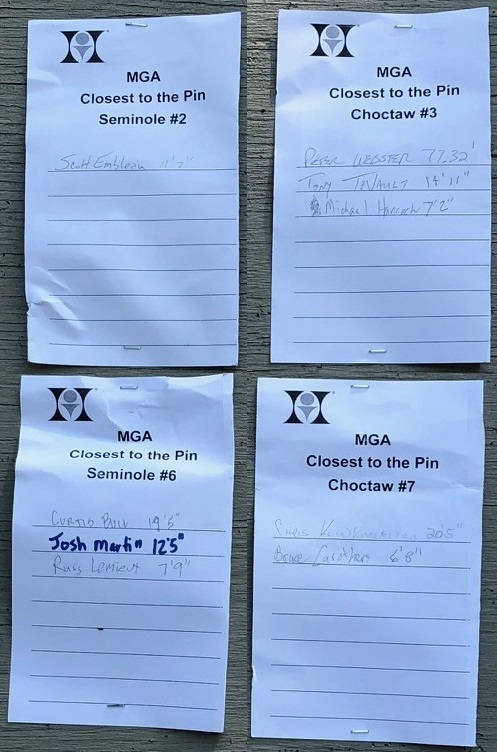 MGA
Closest to the Pin
Seminole #2
Scott Embleau 11'2"
MGA
Closest to the Pin
Choctaw #3
PETER WEBSTER 77.32'
TONY 14'11"
Michael Hancock 7'2"
MGA
Closest to the Pin
Seminole #6
CURTIS 19'5"
Josh Martin 12'5"
Russ Lemieux 7'9"
MGA
Closest to the Pin
Choctaw #7
CHRIS 20'5"
Bruce Carothers 6'8"